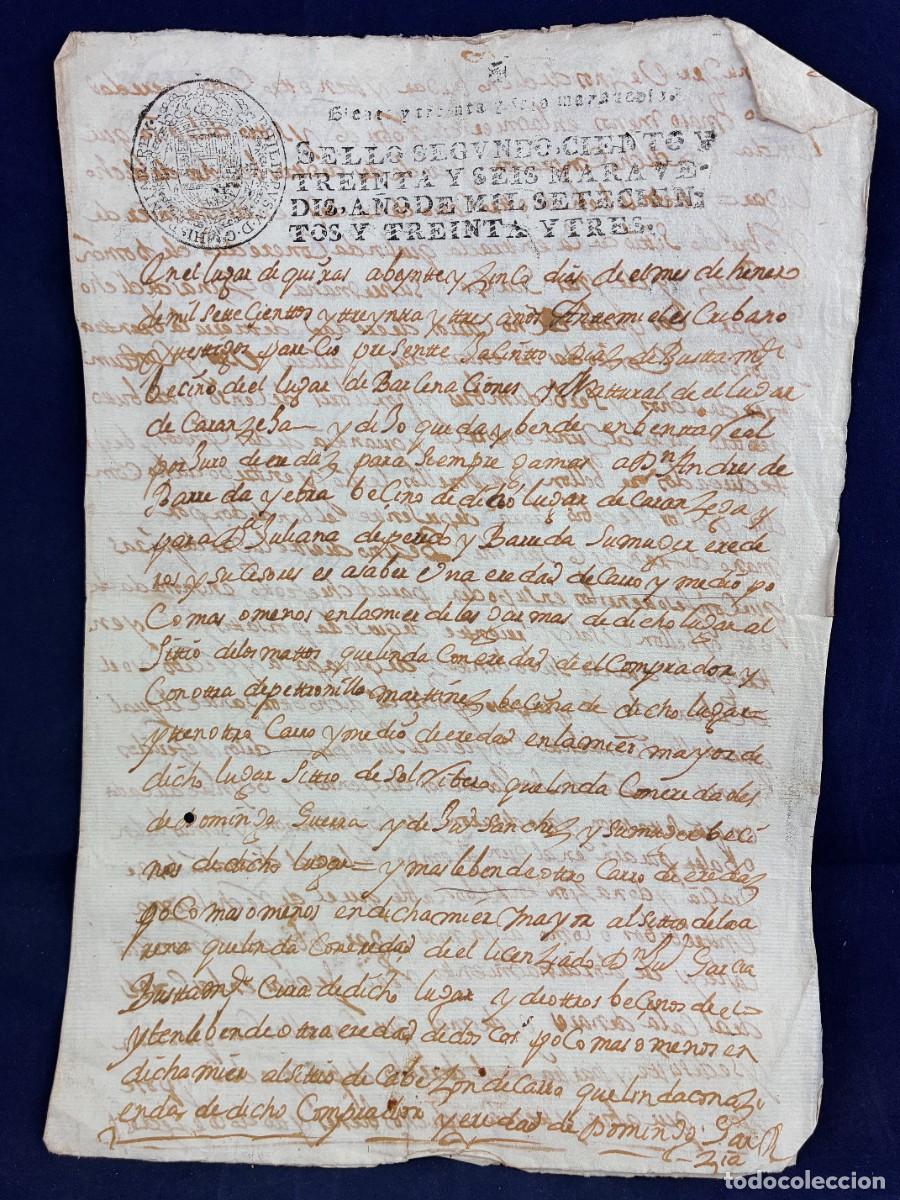 Siete y treinta y seis maravedis.
PHILIPPUS V D G HISP
SELLO SEGVNDO, CIENTO Y
TREINTA Y SEIS MARAVE-
DIS, AÑO DE MIL SETECIEN-
TOS Y TREINTA Y TRES.
En el lugar de quixas a beynte y zinco dias de el mes de henero
de mil sete cientos y treynta y tres años Antemi el escrubano
y testigos parecio presentte Jacintto Diaz de Bustamte
becino de el lugar de Barcena Ciones y Natural de el lugar
de Caranzexa y dixo que da y bende en benta Real
por Juro de eredaz para siempre gamas a Dn Andres de
Barreda y ebra becino de dicho lugar de Caranzexa y
para Da Juliana de peredo y Bareda su muger erede
ros y sucesores es a saber una eredad de Carro y medio po
co mas o menos en la mier de las Darmas de dicho lugar al
Sittio de los mattos que linda Con eredad de el Comprador y
Con otra de petronilla martinez becina de dicho lugar
yten otro Carro y medio de eredad en la mier mayor de
dicho lugar Sittio de Sol Ribero que linda Con eredades
de Domingo Guerra y de Juo Sanchez y su muger beci
nos de dicho lugar = y mas le bende otro Carro de eredaz
poco mas o menos en dicha mier mayor al Sittio de la a
rena que linda Con eredad de el licenziado Dn Juo Garcia
Bustamte Cura de dicho lugar y de otros becinos de el =
yten le bende otra eredad de dos Cos poco mas o menos en
dicha mier al sitio de Cabezon de Carro que linda con azi
endas de dicho Comprador y eredad de Domingo Gar
zia
todocoleccion